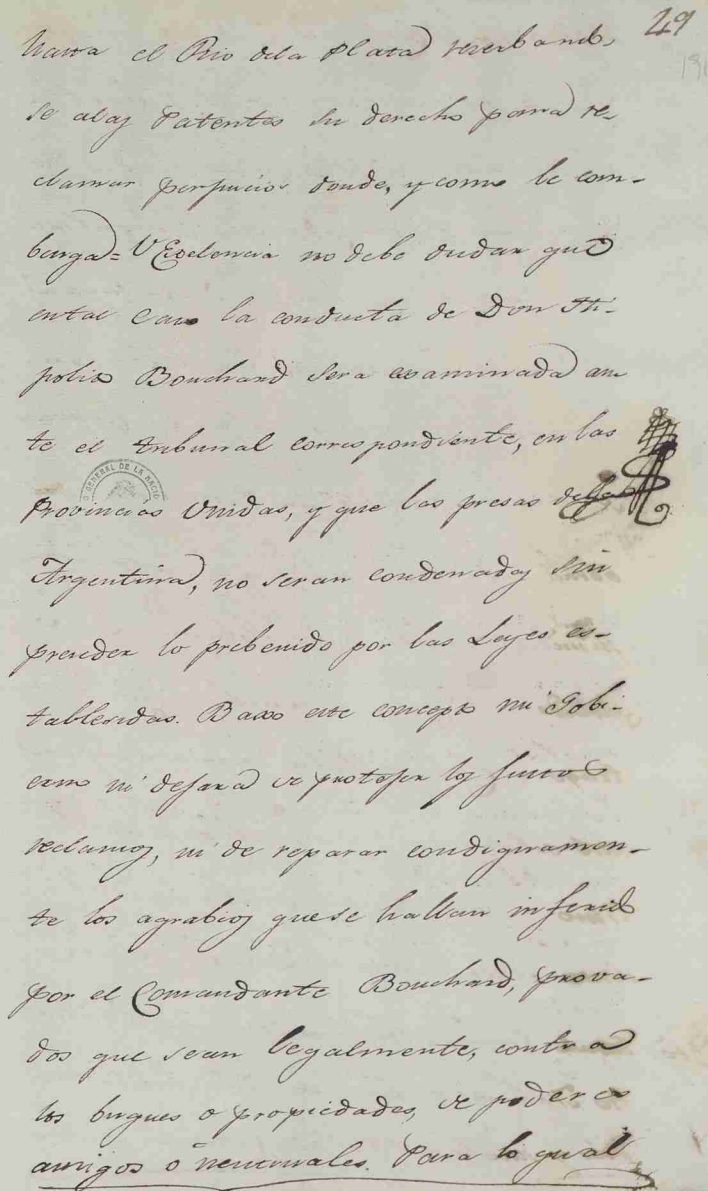 49
hasta el Rio dela Plata reserband,
se alas Patentes su derecho para re-
clamar perjuicios donde, y como le com-
benga= VExelencia no debe dudar que
ental caso la conducta de Don Hi-
polito Bouchard sera examinada an-
te el tribunal correspondiente, en las
Provincias Unidas, y que las presas dela
Argentina, no seran condenadas sin
preceder lo prebenido por las Leyes es-
tablecidas. Baxo este concepto mi Gobi-
erno ni dejara de protejer los justos
reclamos, ni de reparar condignamen-
te los agrabios quese hallan inferido
por el Comandante Bouchard, prova-
dos que sean legalmente, contra
los buques o propiedades de poderes
amigos ó neutrales. Para lo qual
GENERAL DE LA NACIO